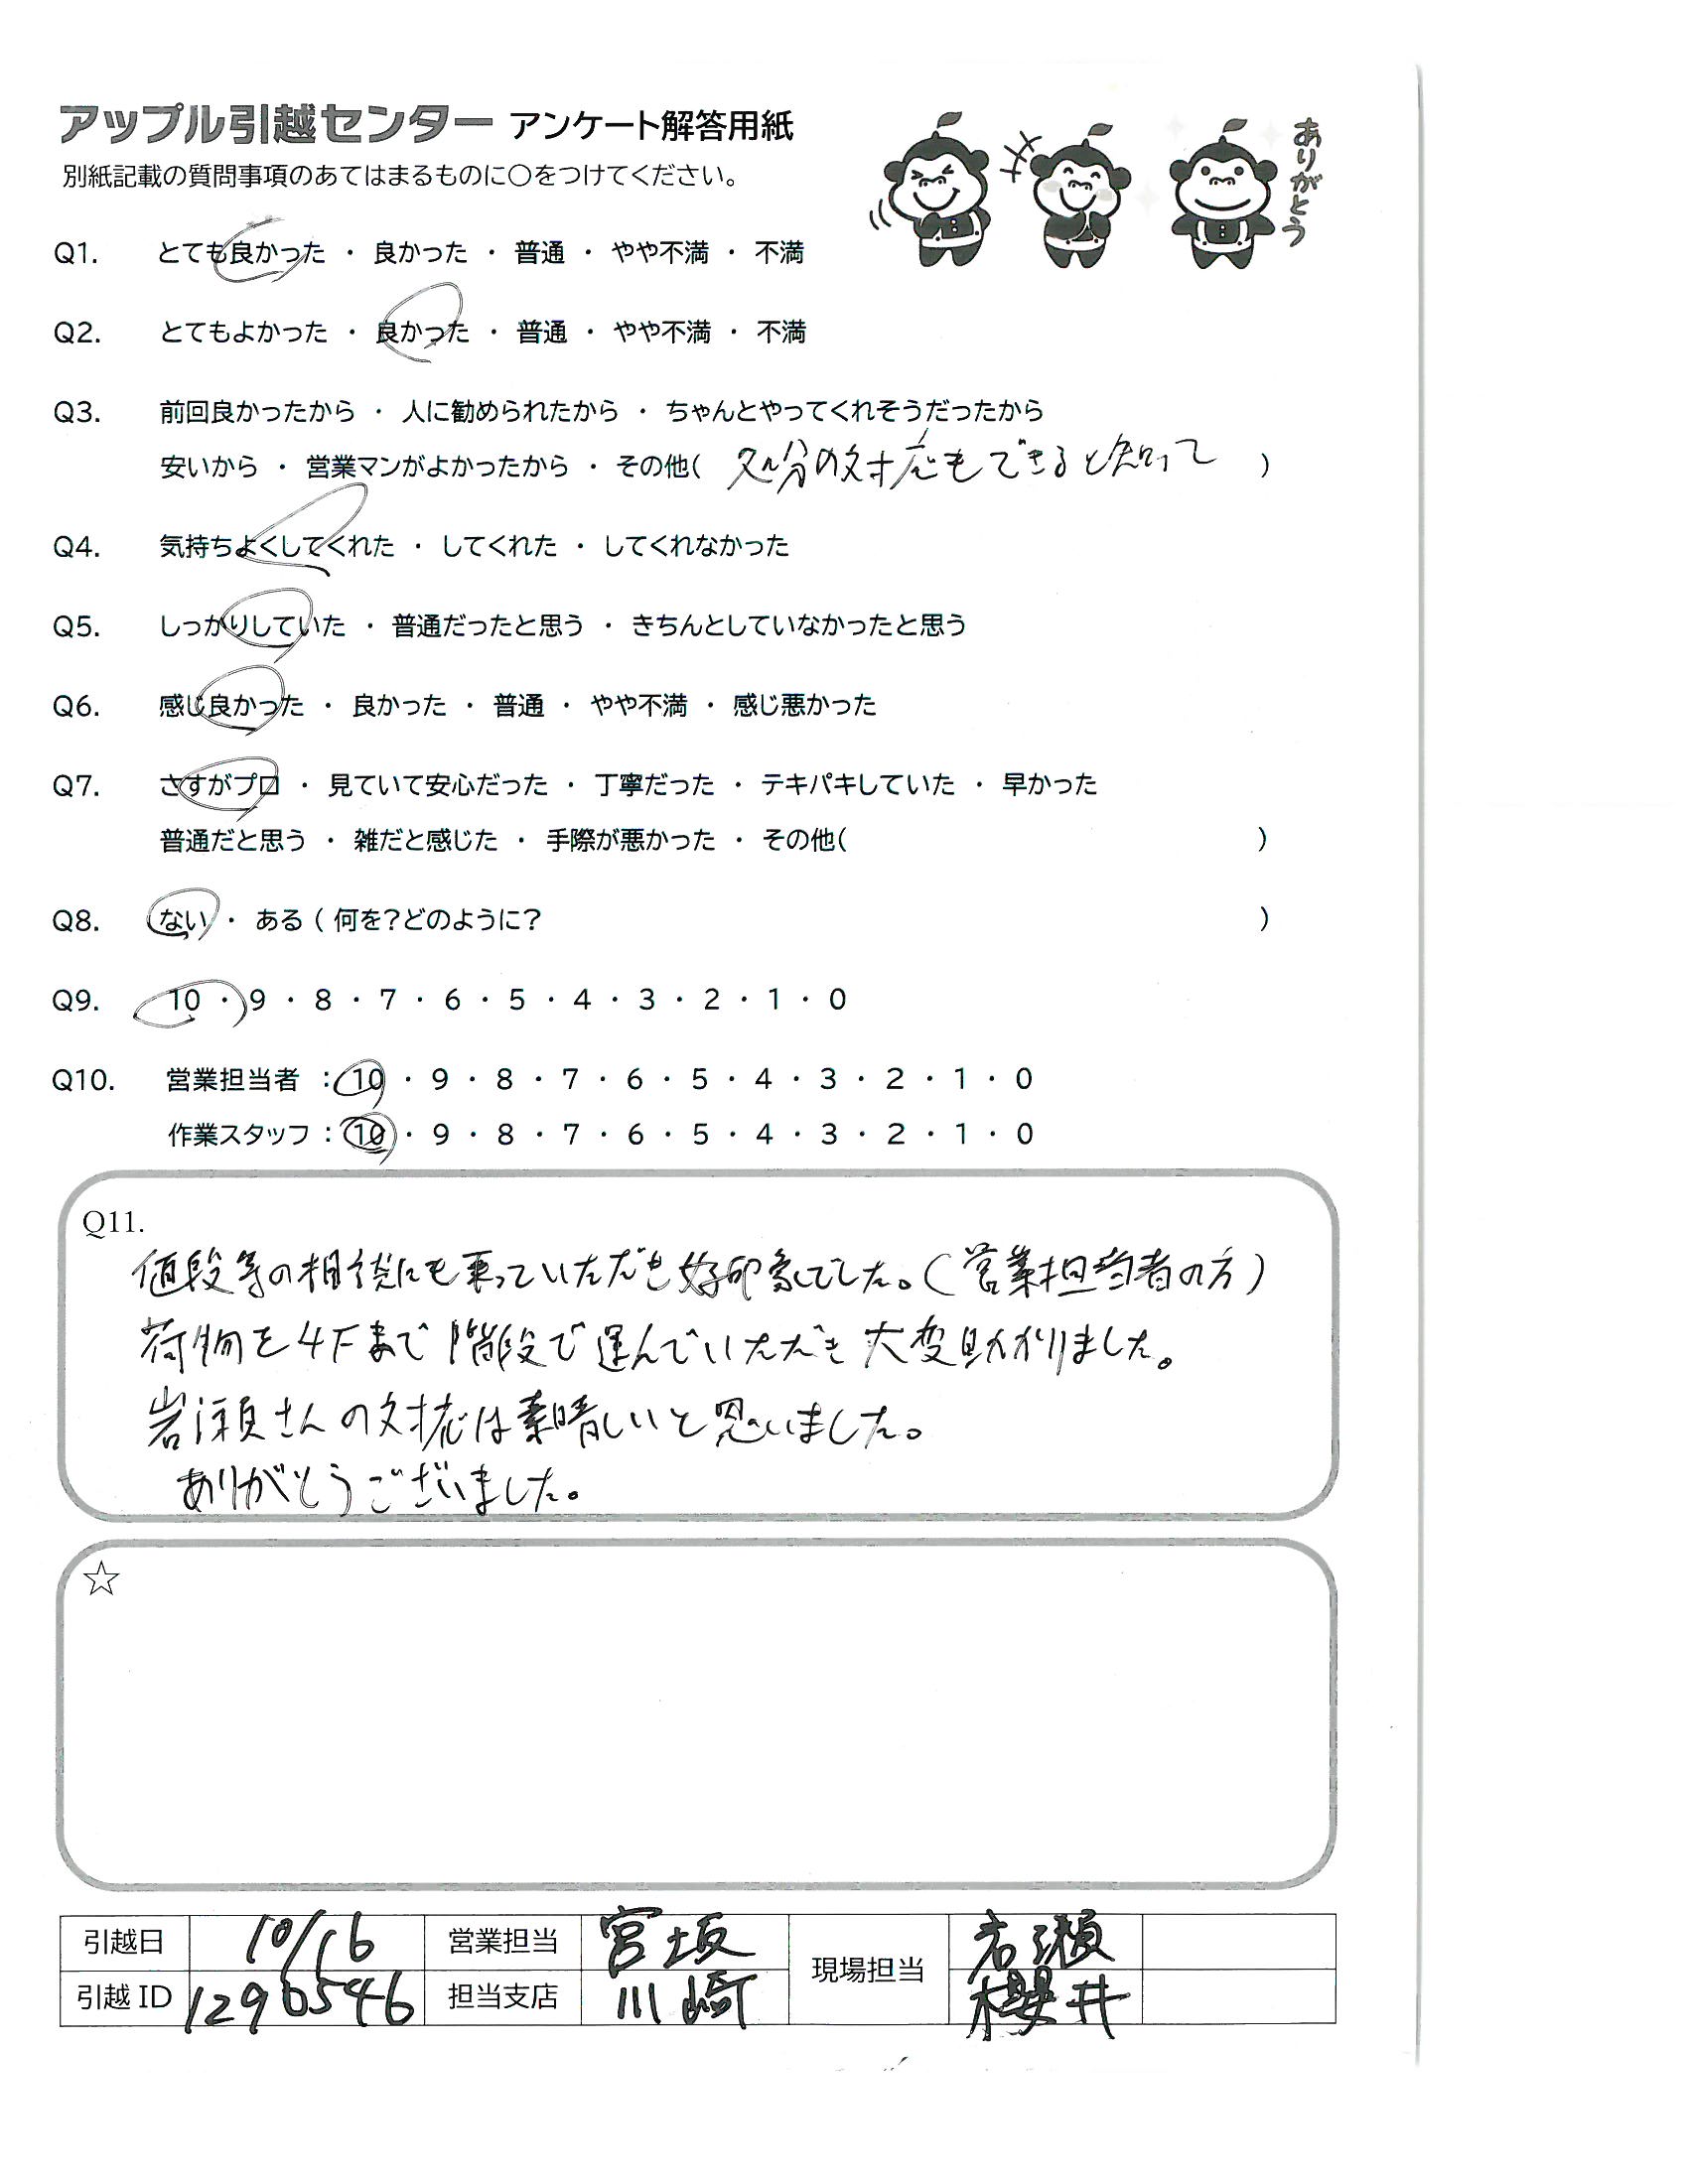 アップル引越センター アンケート解答用紙
別紙記載の質問事項のあてはまるものに○をつけてください。
ありがとう
Q1. とても良かった ・ 良かった ・ 普通 ・ やや不満 ・ 不満
Q2. とてもよかった ・ 良かった ・ 普通 ・ やや不満 ・ 不満
Q3. 前回良かったから ・ 人に勧められたから ・ ちゃんとやってくれそうだったから
安いから ・ 営業マンがよかったから ・ その他( 処分の対応もできると知って )
Q4. 気持ちよくしてくれた ・ してくれた ・ してくれなかった
Q5. しっかりしていた ・ 普通だったと思う ・ きちんとしていなかったと思う
Q6. 感じ良かった ・ 良かった ・ 普通 ・ やや不満 ・ 感じ悪かった
Q7. さすがプロ ・ 見ていて安心だった ・ 丁寧だった ・ テキパキしていた ・ 早かった
普通だと思う ・ 雑だと感じた ・ 手際が悪かった ・ その他( )
Q8. ない ・ ある ( 何を?どのように? )
Q9. 10 ・ 9 ・ 8 ・ 7 ・ 6 ・ 5 ・ 4 ・ 3 ・ 2 ・ 1 ・ 0
Q10. 営業担当者 : 10 ・ 9 ・ 8 ・ 7 ・ 6 ・ 5 ・ 4 ・ 3 ・ 2 ・ 1 ・ 0
作業スタッフ : 10 ・ 9 ・ 8 ・ 7 ・ 6 ・ 5 ・ 4 ・ 3 ・ 2 ・ 1 ・ 0
Q11.
値段等の相談にも乗っていただき好印象でした。(営業担当者の方)
荷物を4Fまで階段で運んでいただき大変助かりました。
岩瀬さんの対応は素晴しいと思いました。
ありがとうございました。
☆
引越日 10/16 営業担当 宮坂 現場担当 岩瀬
引越ID 1296546 担当支店 川崎 櫻井